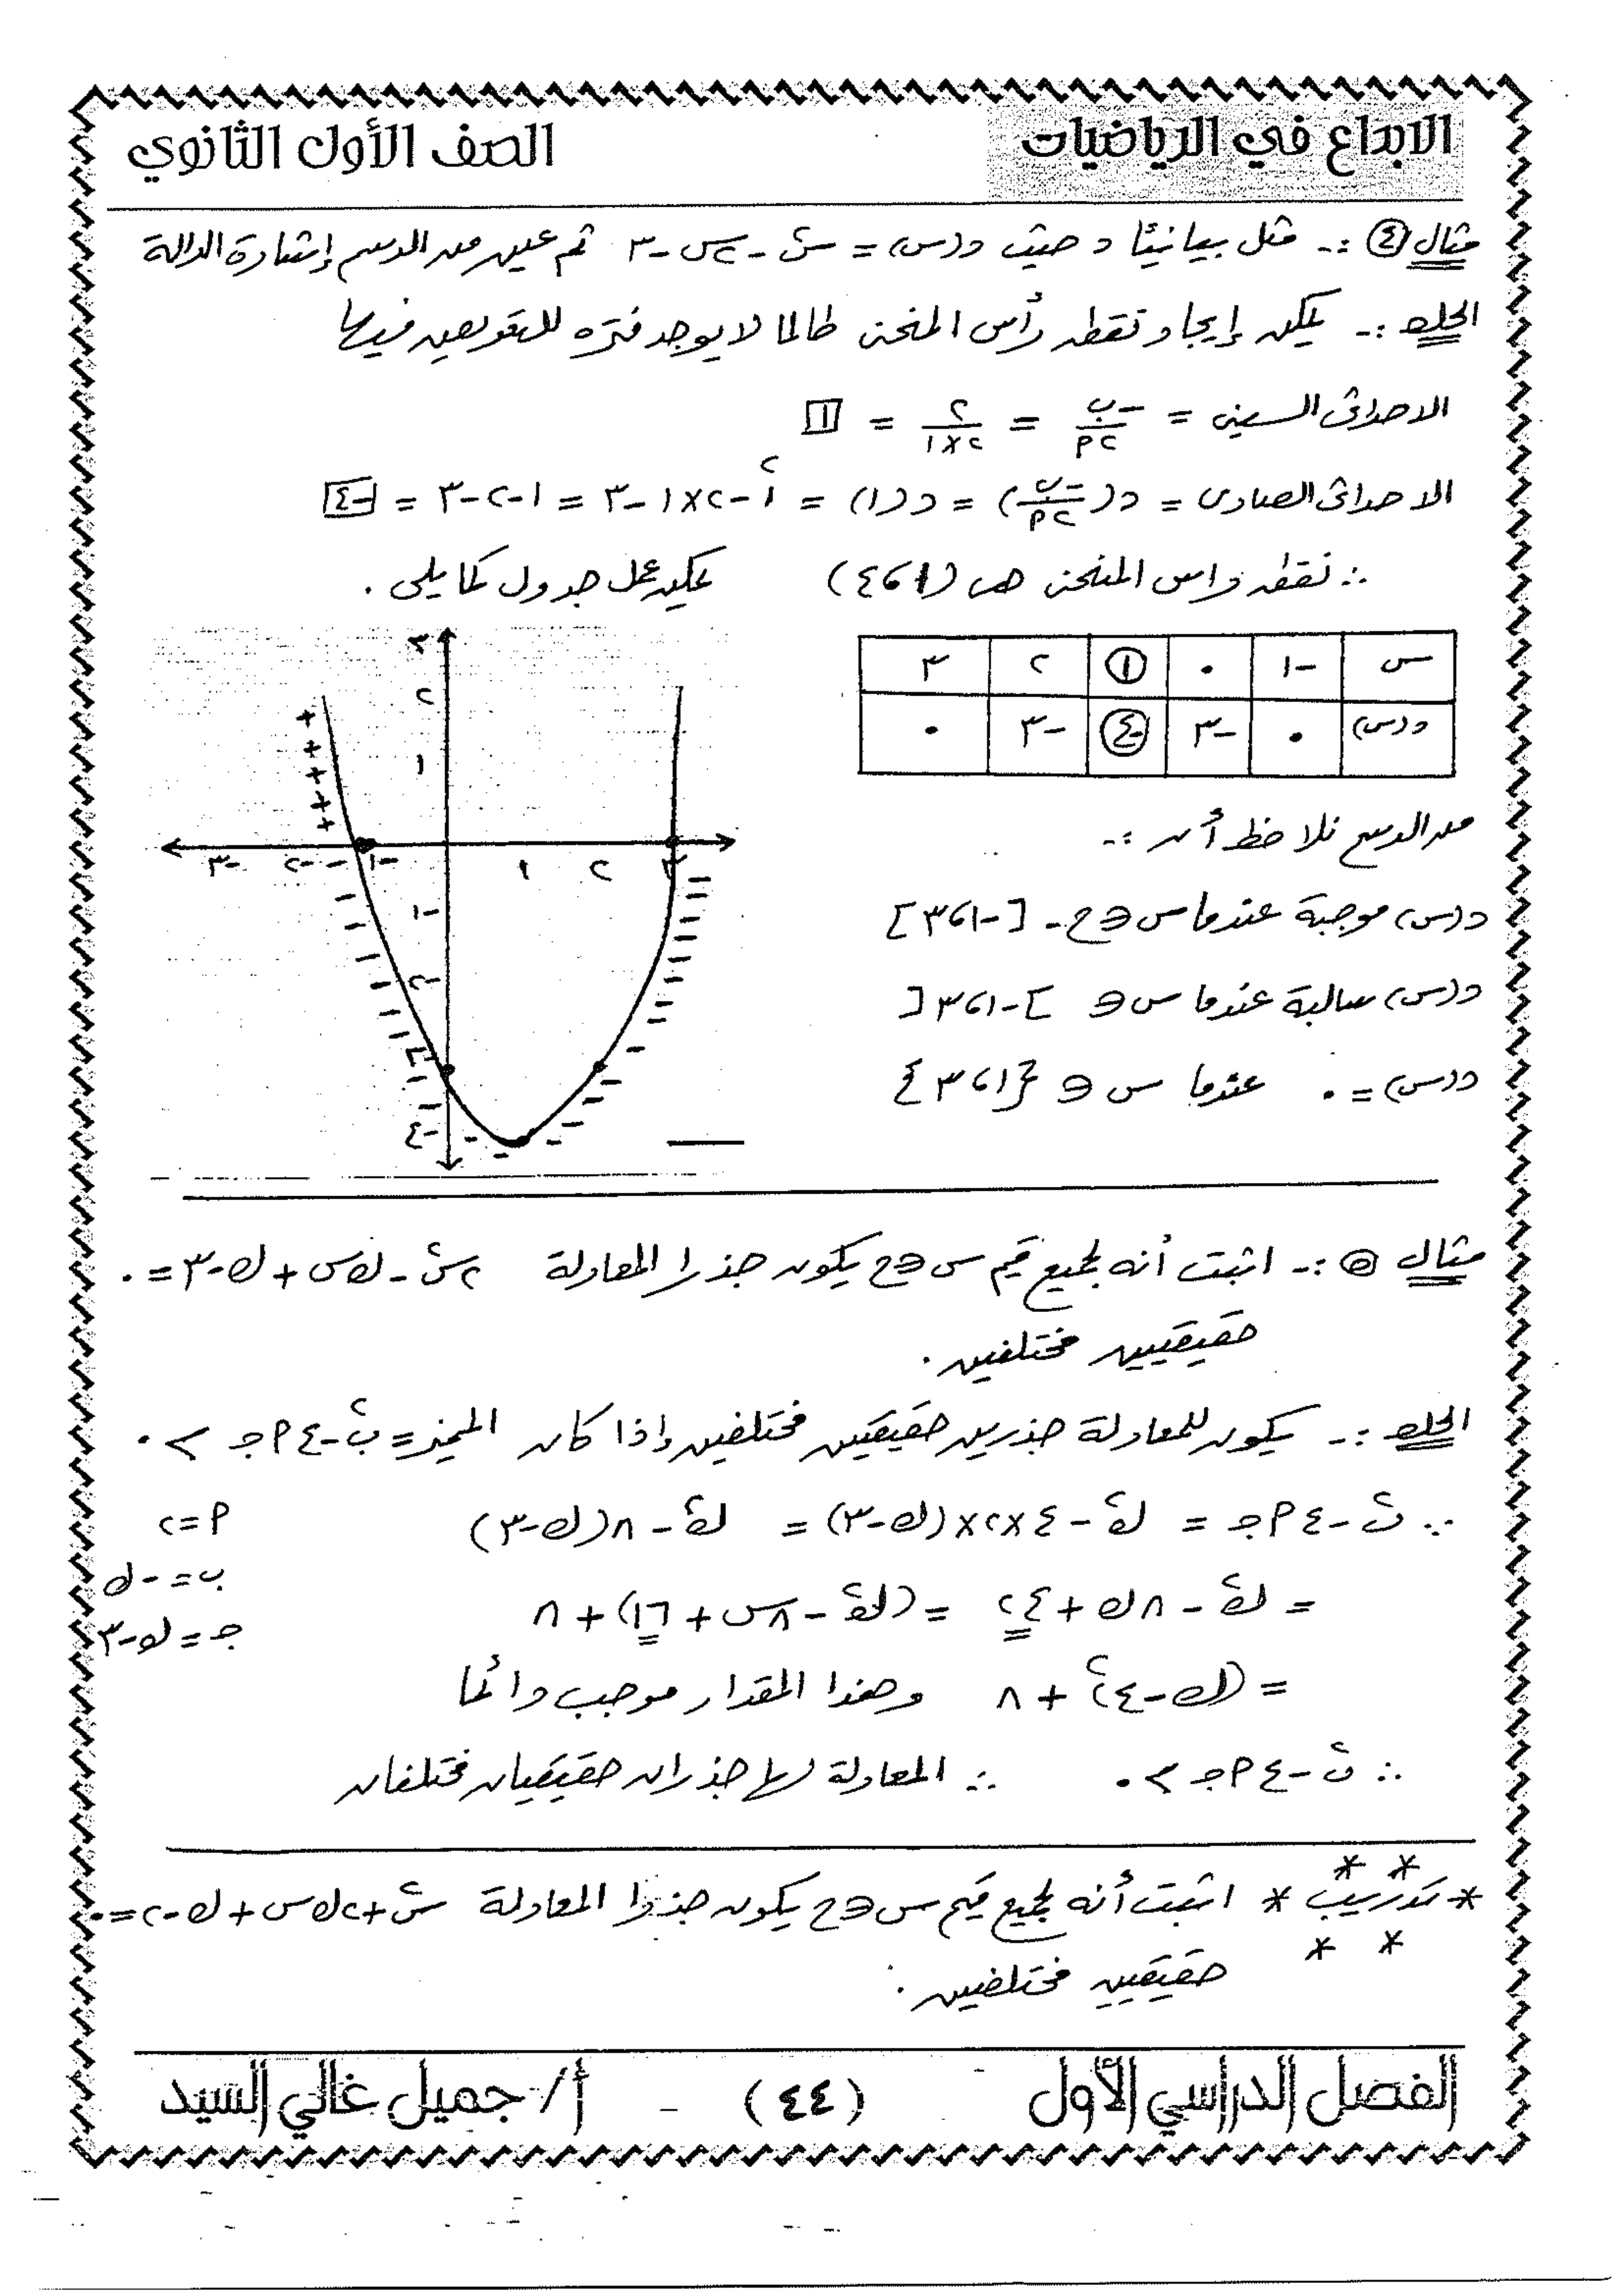 الابداع في الرياضيات الصف الأول الثانوي
مثال (٤) :- مثل بيانيًا د حيث د(س) = س² - ٢س - ٣ ثم عين من الرسم إشارة الدالة
الحل :- يمكن إيجاد نقطه رأس المنحنى طالما لا يوجد فتره للتعويض فيها
الاحداثى السينى = -ب/٢أ = ٢/٢×١ = ١
الاحداثى الصادى = د(-ب/٢أ) = د(١) = ١² - ٢×١ - ٣ = ١-٢-٣ = -٤
∴ نقطه رأس المنحنى هى (١، ٤) يمكن عمل جدول كما يلى .
س -١ ٠ ١ ٢ ٣
د(س) ٠ -٣ -٤ -٣ ٠
٣
٢
١
-٣ -٢ -١ ١ ٢ ٣
-١
-٢
-٣
-٤
من الرسم نلاحظ أن :-
د(س) موجبة عندما س ∈ ح - [-١، ٣]
د(س) سالبة عندما س ∈ ]-١، ٣[
د(س) = ٠ عندما س ∈ {١، ٣}
مثال (٥) :- اثبت أنه لجميع قيم س ∈ ح يكون جذرا المعادلة ٢س² - ك س + ك - ٣ = ٠
حقيقيين مختلفين .
الحل :- يكون للمعادلة جذرين حقيقيين مختلفين إذا كان المميز = ب² - ٤أجـ > ٠
∵ ب² - ٤أجـ = ك² - ٤×٢×(ك-٣) = ك² - ٨(ك-٣) أ = ٢
= ك² - ٨ك + ٢٤ = (ك² - ٨س + ١٦) + ٨ ب = -ك
جـ = ك-٣
= (ك-٤)² + ٨ وهذا المقدار موجب دائما
∴ ب² - ٤أجـ > ٠ ∴ المعادلة لها جذران حقيقيان مختلفان
* تدريب * اثبت أنه لجميع قيم س ∈ ح يكون جذرا المعادلة س² + ٢ك س + ك - ٢ = ٠
حقيقيين مختلفين .
الفصل الدراسي الأول (٤٤) أ/ جميل غالي السيد